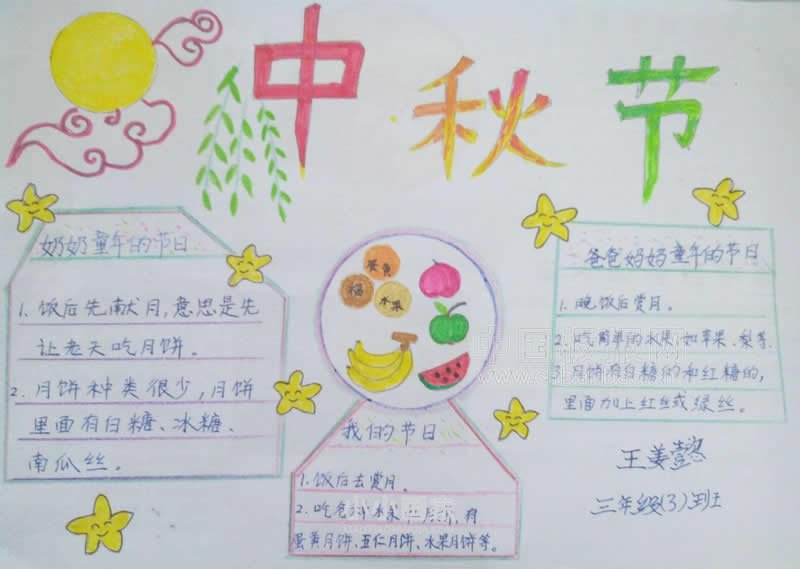 中秋节
奶奶童年的节日
1. 饭后先献月,意思是先
让老天吃月饼。
2. 月饼种类很少,月饼
里面有白糖、冰糖、
南瓜丝。
蛋黄
福
水果
我们的节日
1. 饭后去赏月。
2. 吃各种水果
有
蛋黄月饼、五仁月饼、水果月饼等。
爸爸妈妈童年的节日
1. 晚饭后赏月。
2. 吃简单的水果,如苹果、梨等.
3. 月饼有白糖的和红糖的,
里面加上红丝或绿丝。
王姜懿
三年级(3)班